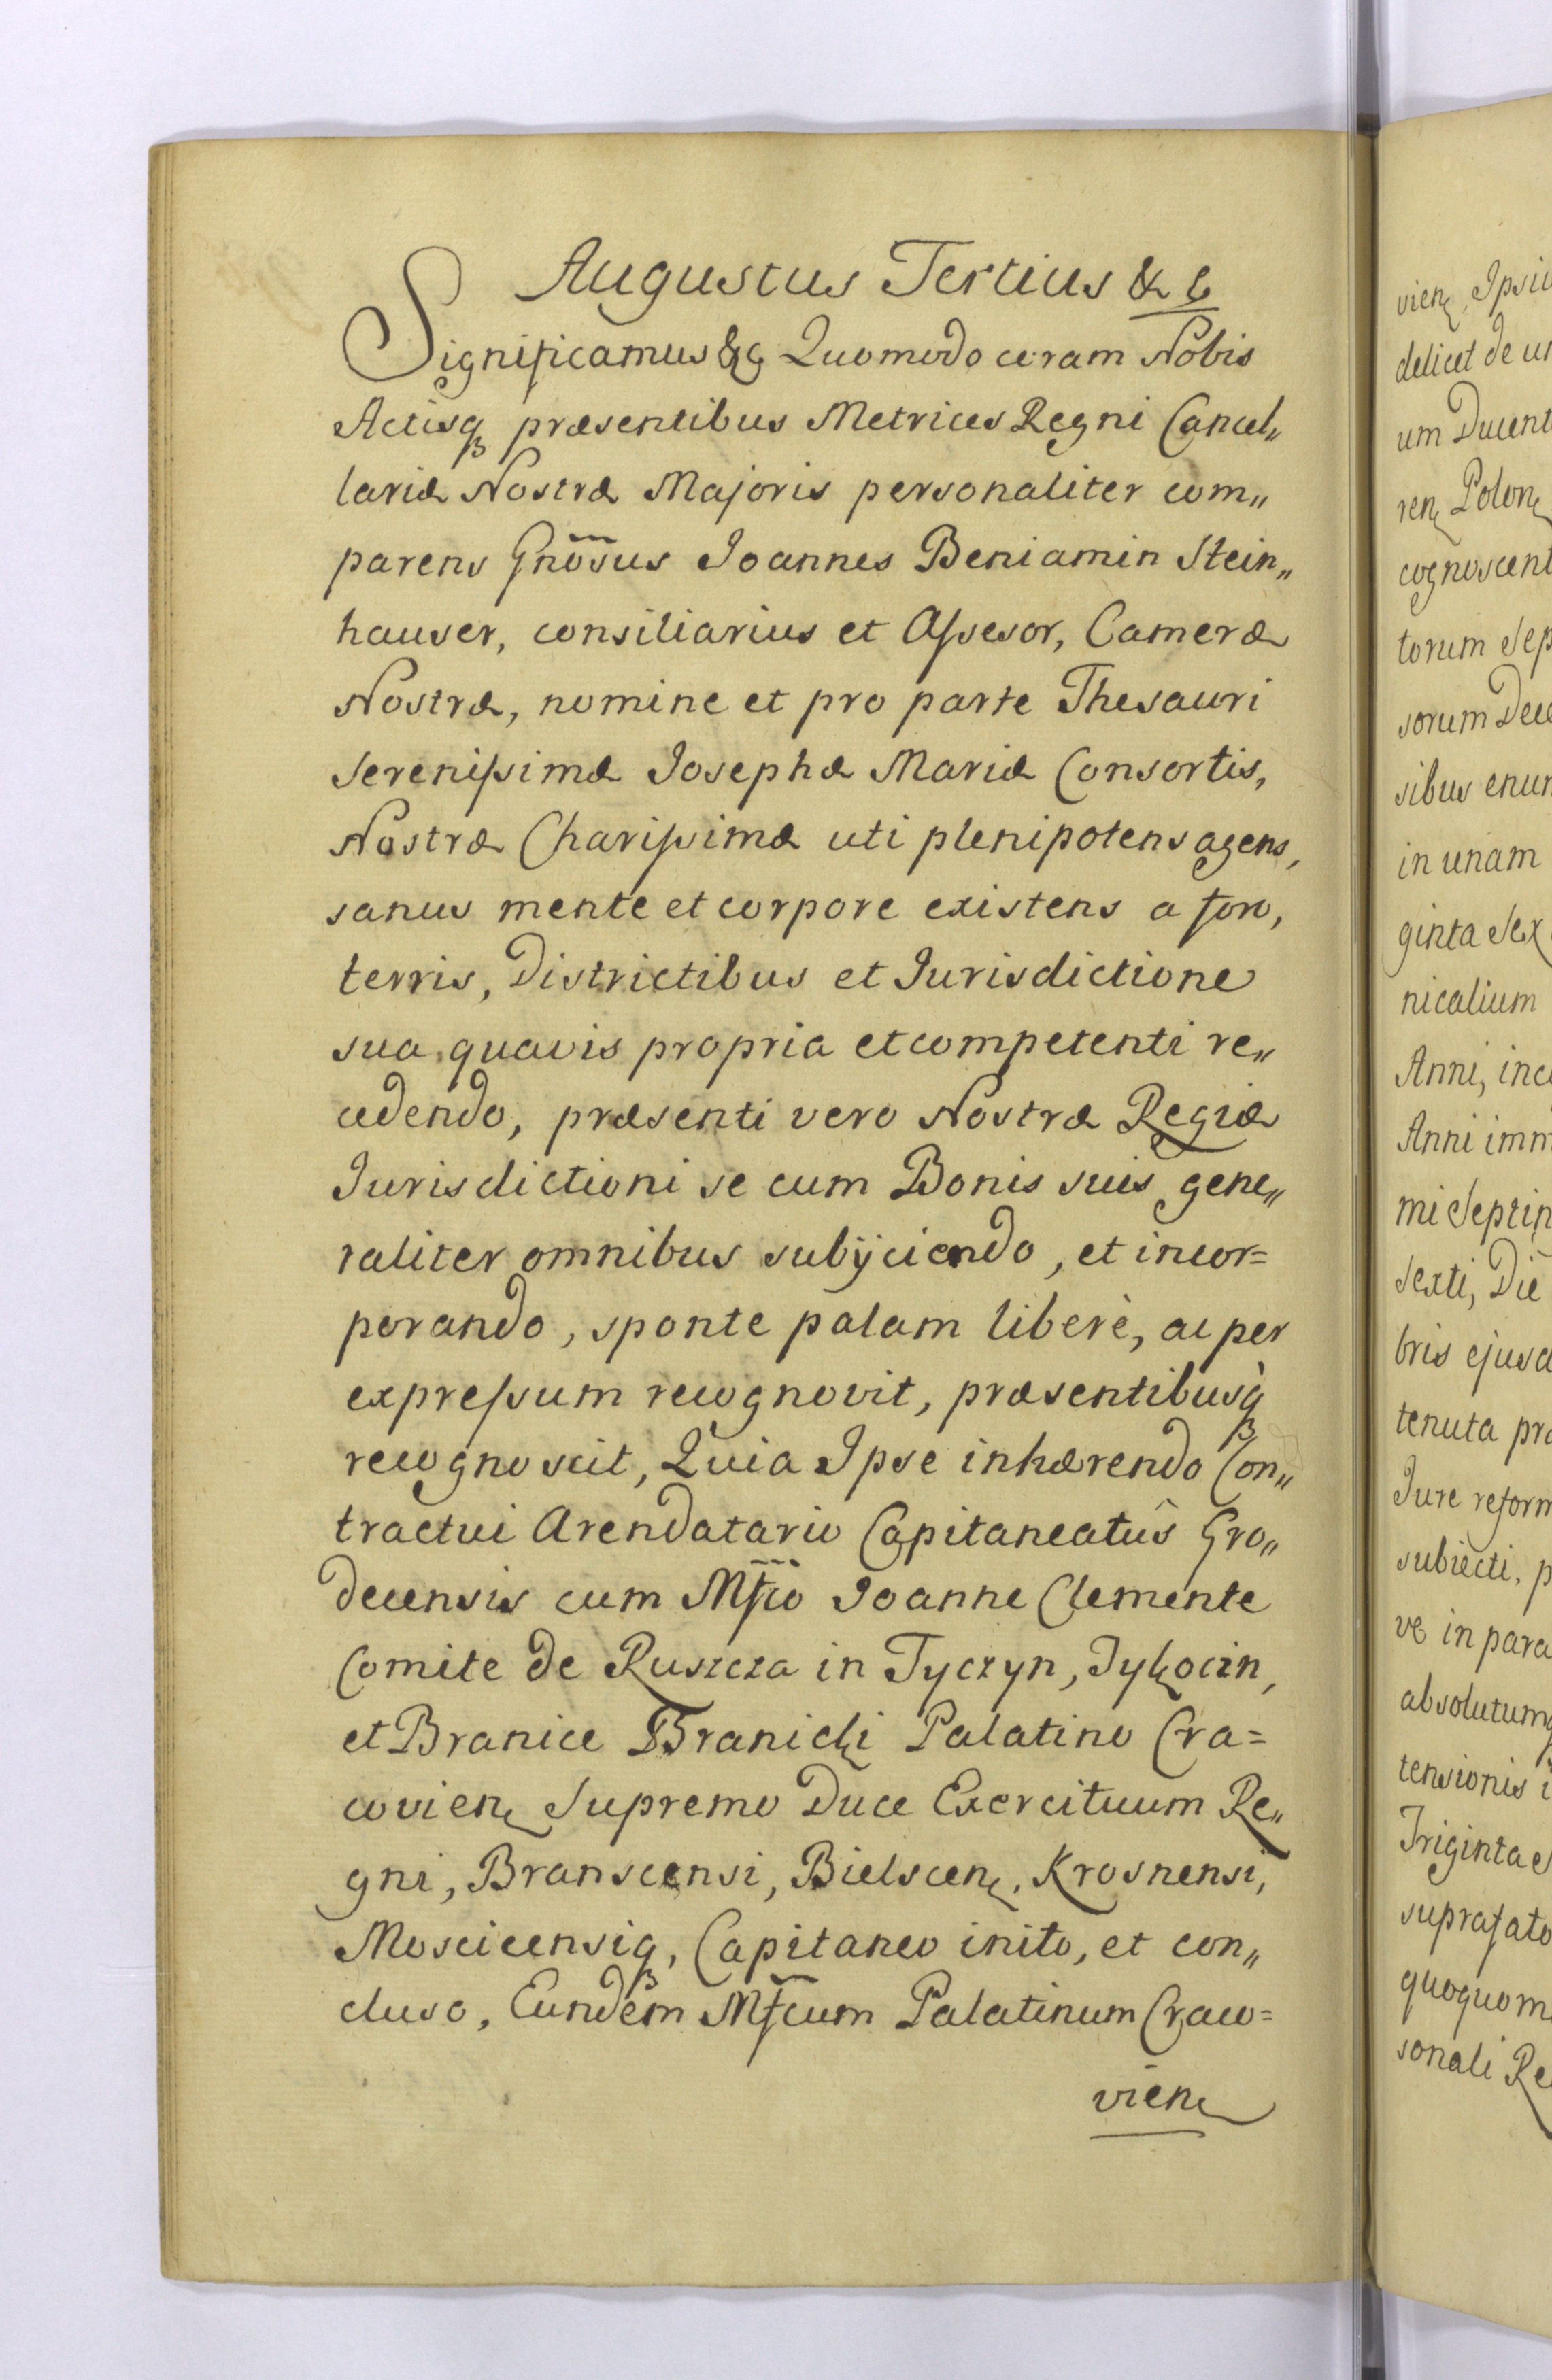 Augustus Tertius &c
Significamus &c Quomodo coram Nobis
Actisq3 præsentibus Metrices Regni Cancel„
lariæ Nostræ Majoris personaliter com„
parens Gnõsus Joannes Beniamin Stein„
hauser, consiliarius et Assesor, Cameræ
Nostræ, nomine et pro parte Thesauri
Serenissimæ Josephæ Mariæ Consortis,
Nostræ Charissimæ uti plenipotens agens,
sanus mente et corpore existens a foro,
terris, Districtibus et Jurisdictione
sua quavis propria et competenti re„
cedendo, præsenti vero Nostræ Regiæ
Jurisdictioni se cum Bonis suis gene„
raliter omnibus subijciendo, et incor=
porando, sponte palam liberè, ac per
expressum recognovit, præsentibusq3
recognoscit, Quia Ipse inhærendo Con„
tractui Arendatario Capitaneatûs Gro„
decensis cum Mfico Joanne Clemente
Comite de Ruszcza in Tyczyn, Tykocin,
et Branice Branicki Palatino Cra=
covien Supremo Duce Exercituum Re„
gni, Branscensi, Bielscen, Krosnensi,
Moscicensiq3, Capitaneo inito, et con„
cluso, Eundem Mfcum Palatinum Craco=
vien
vien Ipsiu
delicet de un
um Ducent
ren Polon
cognoscent
torum Sep
sorum Dece
sibus enun
in unam
ginta Sex
nicalium
Anni, inc
Anni imm
mi Septin
Sexti, Die
bris ejusd
tenuta pro
Jure reform
subiecti, p
ve in para
absolutumq
tensionis i
Triginta S
suprafato
quoquom
sonali Re